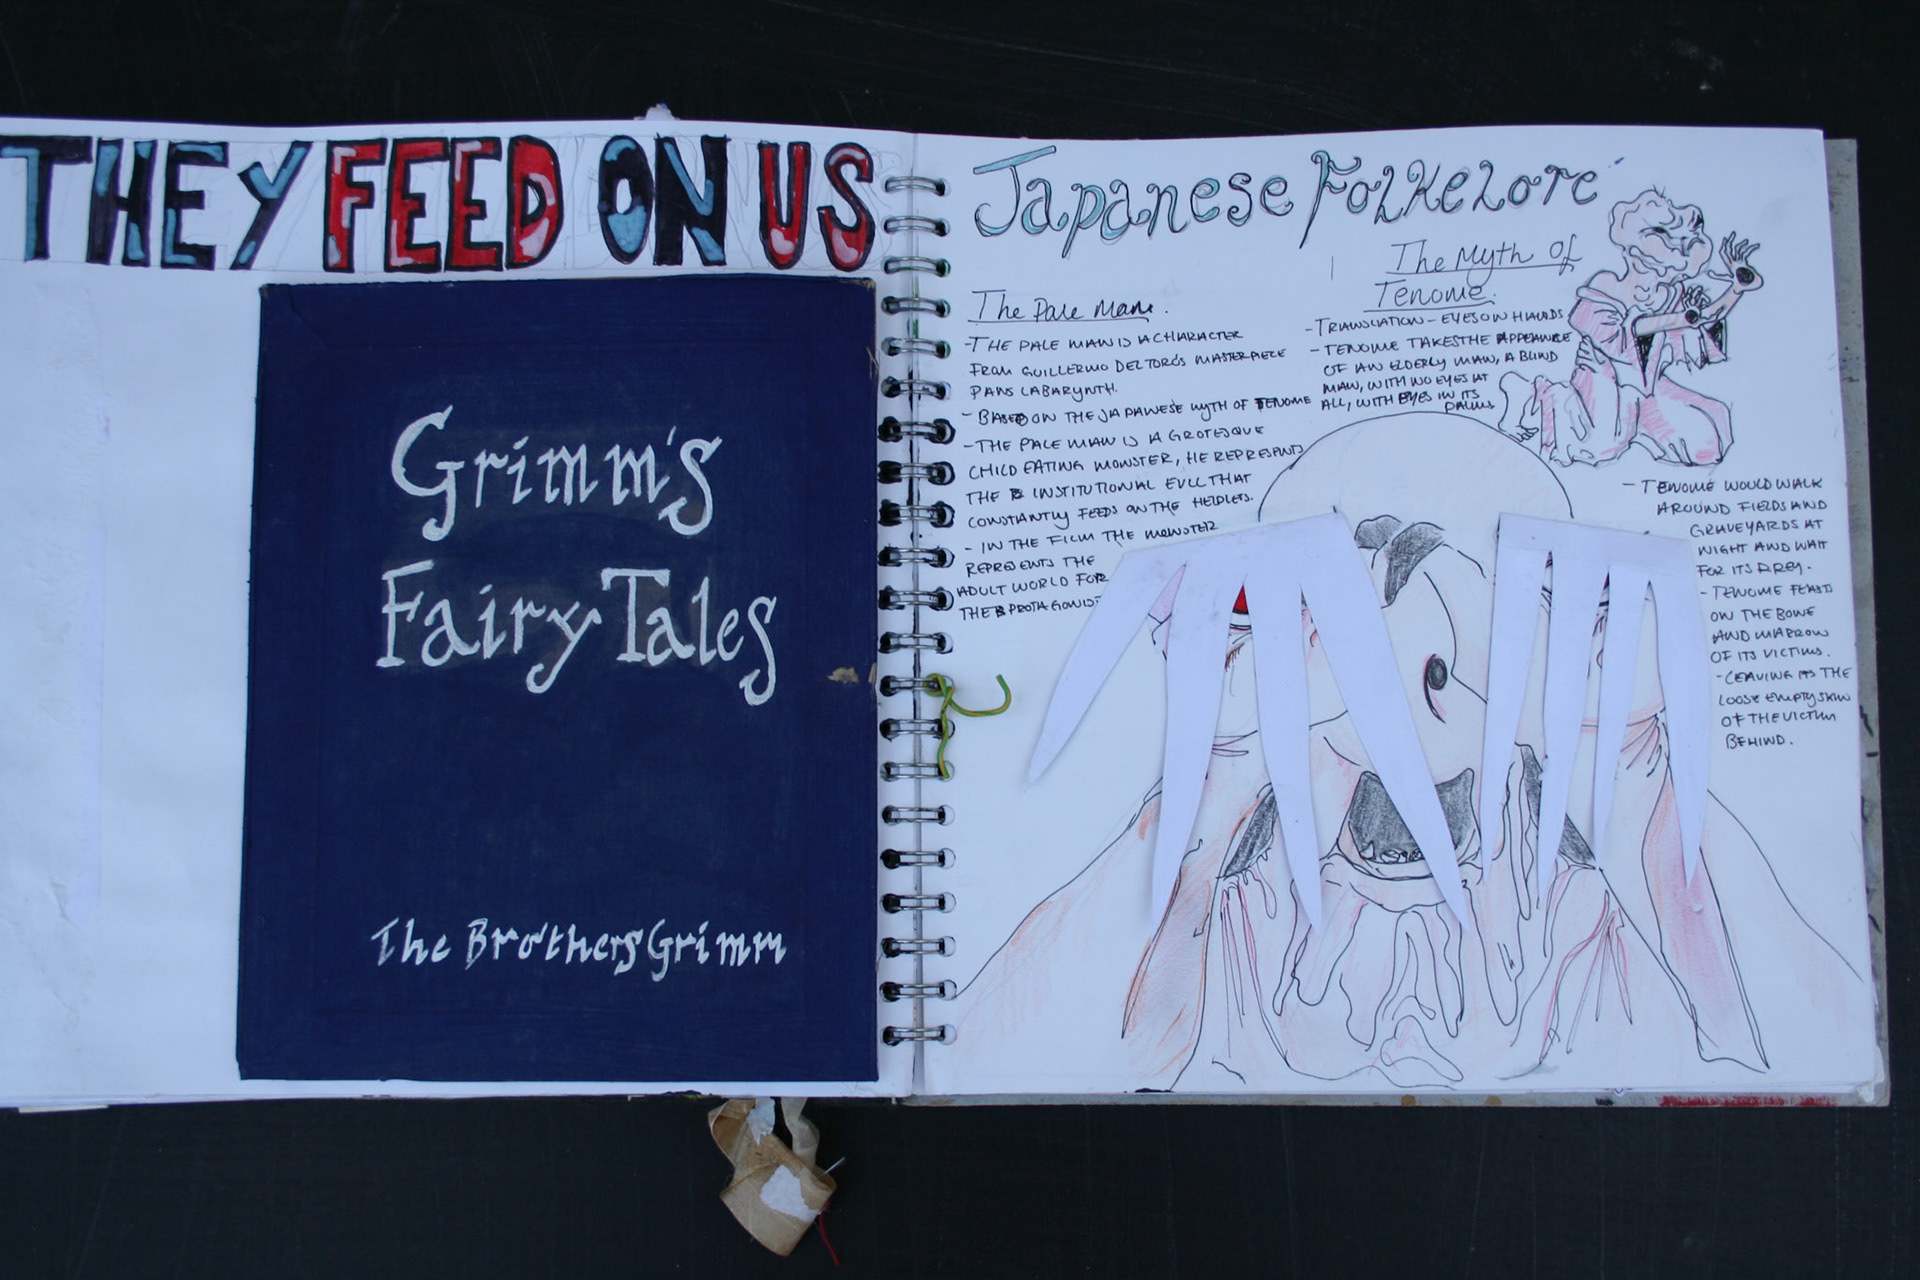 THEY FEED ON US
Grimm's
Fairy Tales
The Brothers Grimm
Japanese Folkelore
The Pale Man.
-THE PALE MAN IS A CHARACTER
FROM GUILLERMO DEL TORO'S MASTERPIECE
PANS LABARYNTH.
- BASED ON THE JAPANESE MYTH OF TENOME
-THE PALE MAN IS A GROTESQUE
CHILD EATING MONSTER, HE REPRESENTS
THE INSTITUTIONAL EVIL THAT
CONSTANTLY FEEDS ON THE HELPLESS.
- IN THE FILM THE MONSTER
REPRESENTS THE
ADULT WORLD FOR
THE PROTAGONIST
The Myth Of
Tenome.
-TRANSLATION - EYES ON HANDS
- TENOME TAKES THE APPEARANCE
OF AN ELDERLY MAN, A BLIND
MAN, WITH NO EYES AT
ALL, WITH EYES IN ITS
PALMS
- TENOME WOULD WALK
AROUND FIELDS AND
GRAVEYARDS AT
NIGHT AND WAIT
FOR ITS PREY.
- TENOME FEASTS
ON THE BONE
AND MARROW
OF ITS VICTIMS.
-LEAVING THE
LOOSE EMPTY SKIN
OF THE VICTIM
BEHIND.